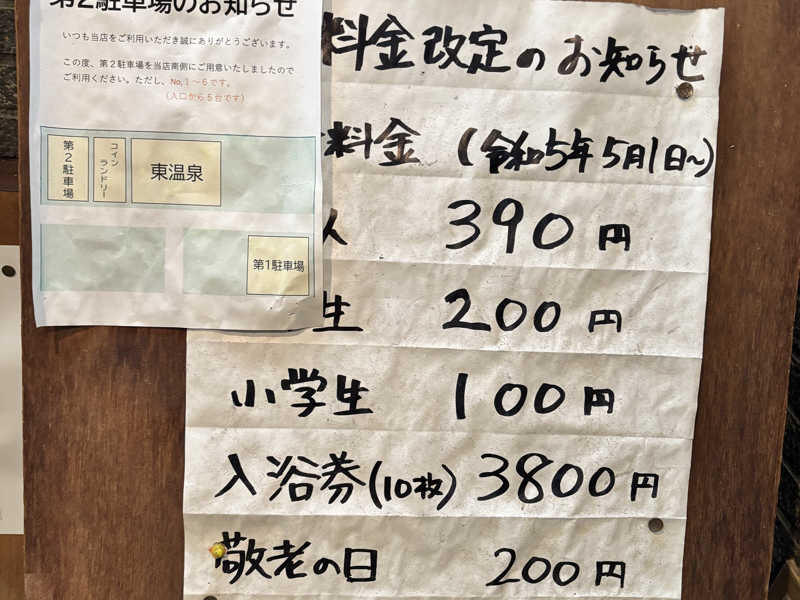 第2駐車場のお知らせ
いつも当店をご利用いただき誠にありがとうございます。
この度、第2駐車場を当店南側にご用意いたしましたので
ご利用ください。ただし、No,1〜6です。
(入口から5台です)
第2駐車場
コインランドリー
東温泉
第1駐車場
料金改定のお知らせ
料金 (令和5年5月1日〜)
人 390円
生 200円
小学生 100円
入浴券(10枚) 3800円
敬老の日 200円